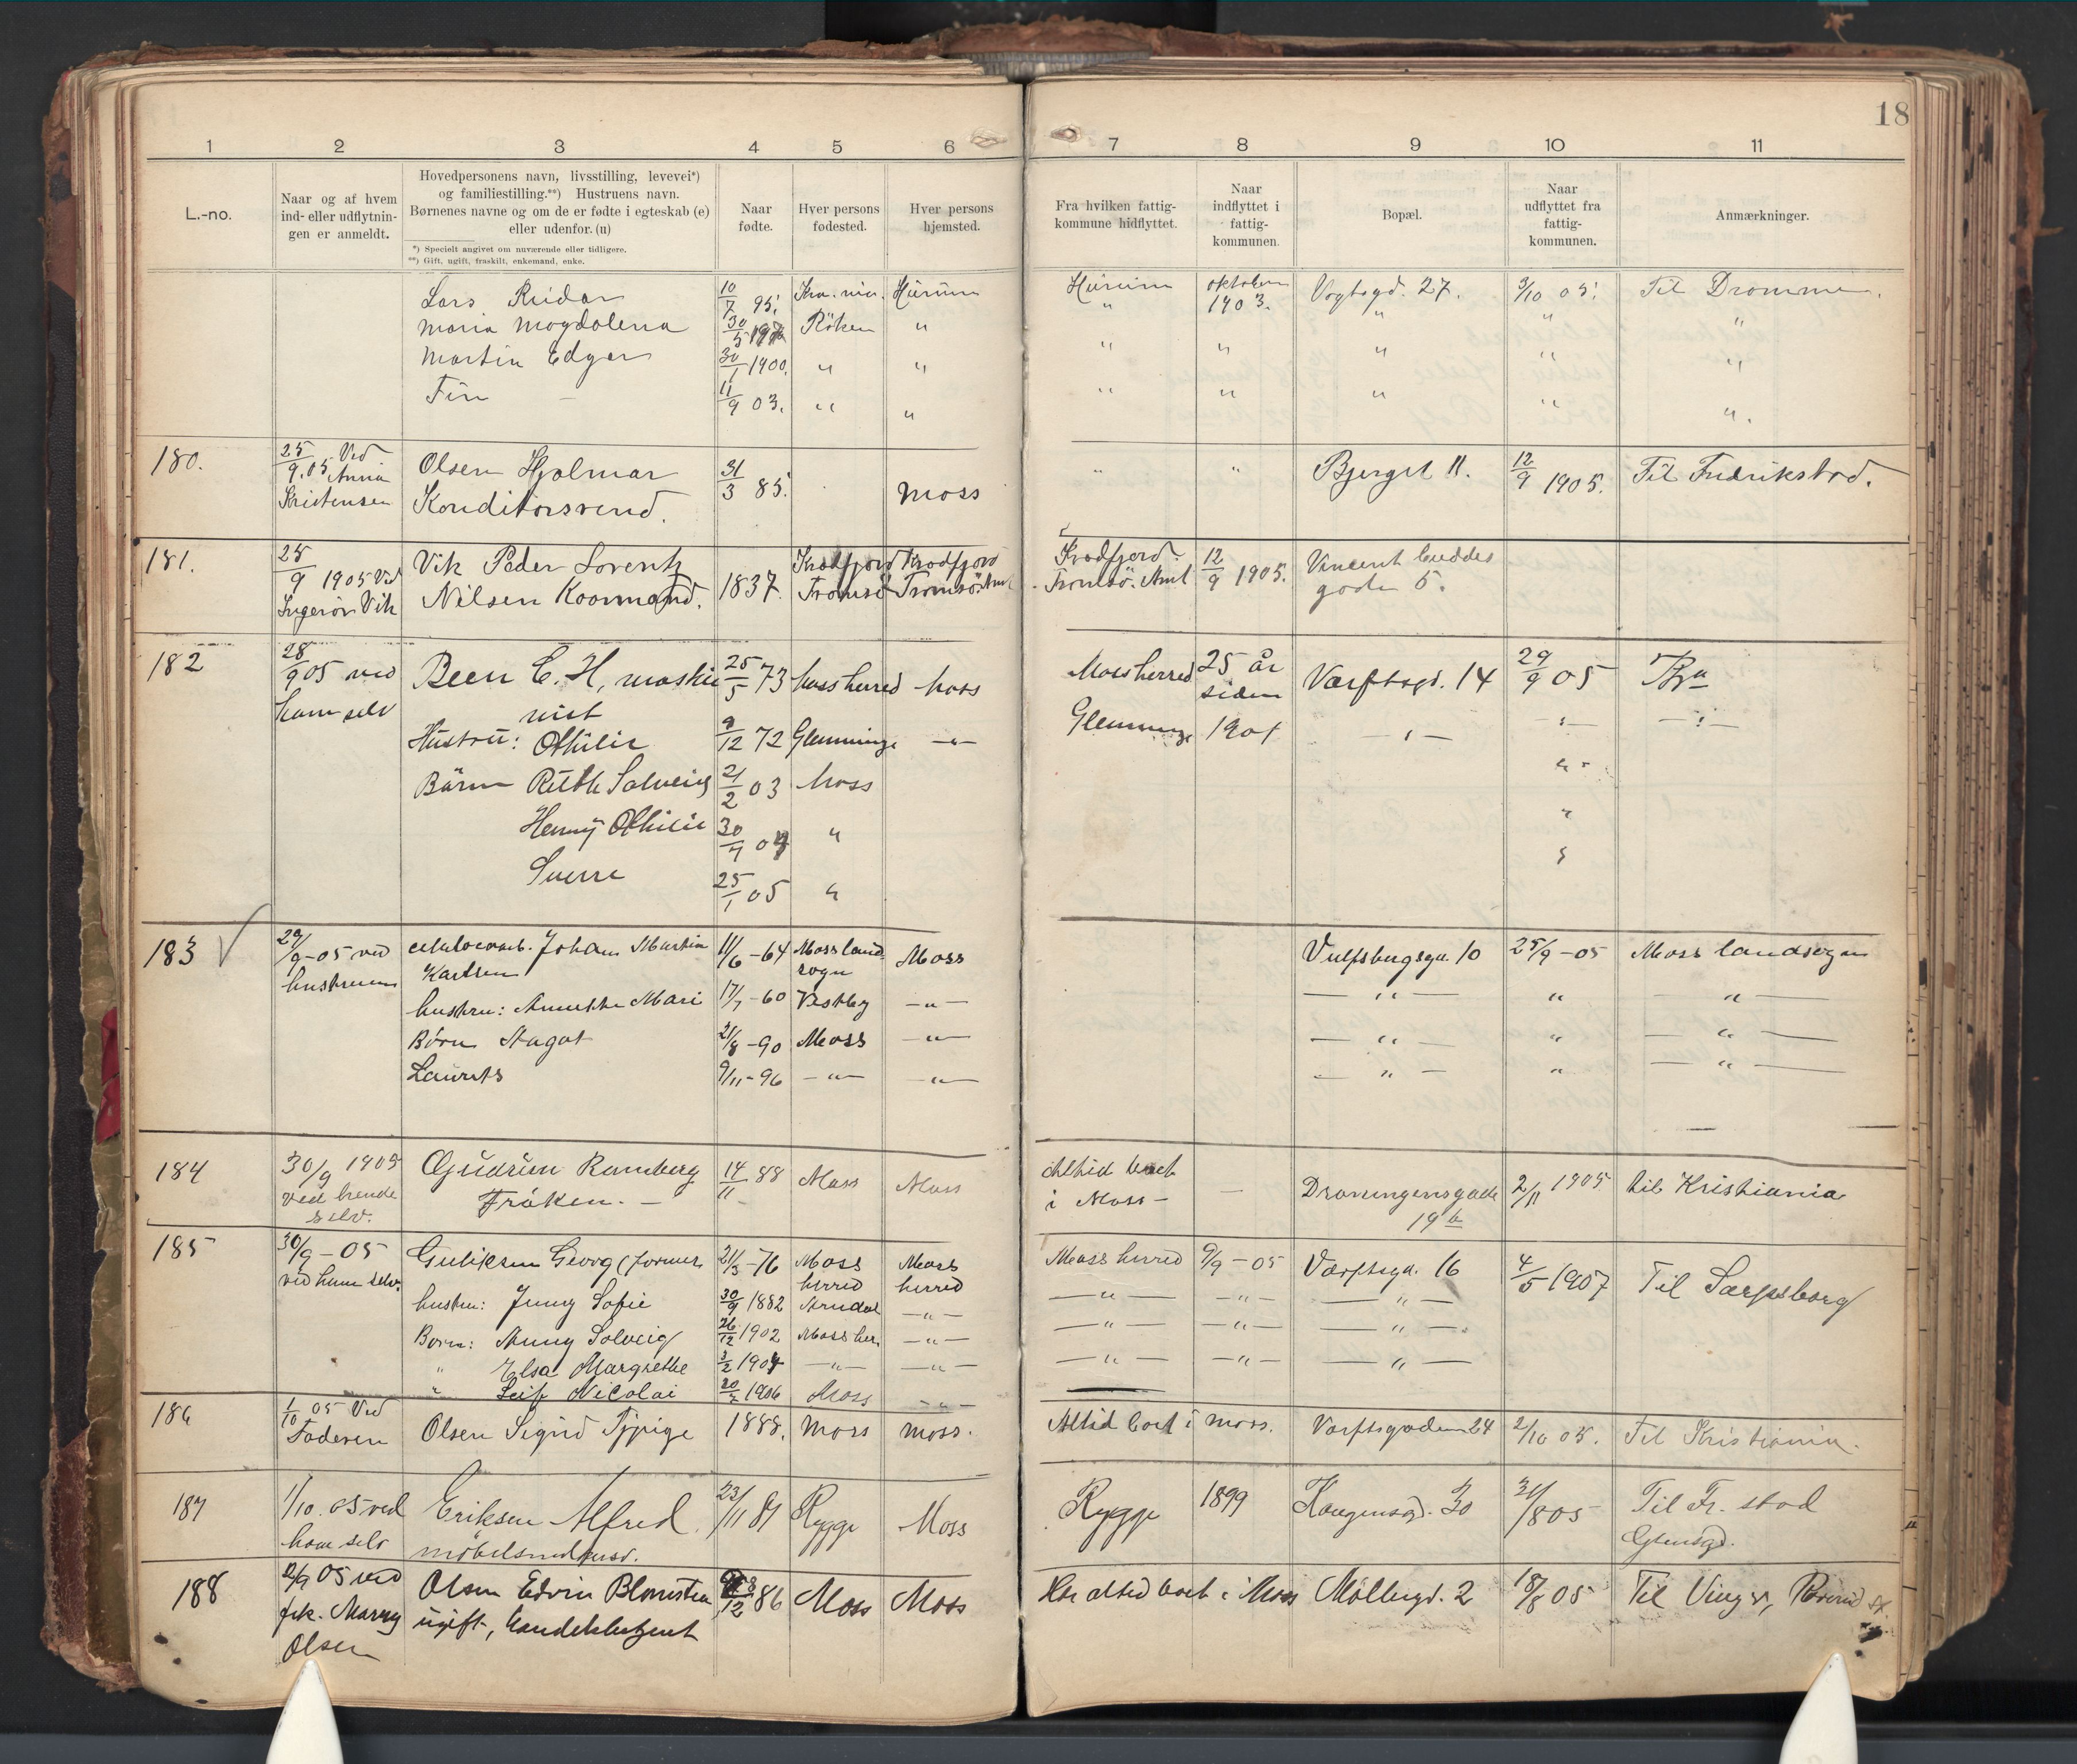 18
1 2 3 4 5 6 7 8 9 10 11
L.-no.
Naar og af hvem
ind- eller udflytnin-
gen er anmeldt.
Hovedpersonens navn, livsstilling, levevei*)
og familiestilling.**) Hustruens navn.
Børnenes navne og om de er fødte i egteskab (e)
eller udenfor. (u)
*) Specielt angivet om nuværende eller tidligere.
**) Gift, ugift, fraskilt, enkemand, enke.
Naar
fødte.
Hver persons
fødested.
Hver persons
hjemsted.
Fra hvilken fattig-
kommune hidflyttet.
Naar
indflyttet i
fattig-
kommunen.
Bopæl.
Naar
udflyttet fra
fattig-
kommunen.
Anmærkninger.
Lars Reidar 10/7 95. Hurum Hurum oktober 1903. Vogtsgd. 27. 3/10 05. Til Drammen.
Maria Magdalena 30/5 Röken " " " " "
Martin Edgar 30/1 1900. " " " " " " "
Finn 11/9 03. " " " " " " "
180. 25/9.05 Ved Anna Kristensen Olsen Hjalmar 31/3 85. Moss " " Bjerget 11. 12/9 1905. Til Fredrikstad.
Konditorsvend.
181. 25/9 1905 Ved Vik Peder Lorentz 1837. Tromsö Tromsö. Amt Tromsö. Amt 12/9 1905. Vincent Buddes
Vik Nilsen gade 5.
182 28/9 05 ved ham selv Been C. H, maski- 25/5 73 Moss herred Moss Moss herred 25 år siden Værftsgd. 14 29/9 05
nist
Hustru: Othilie 9/12 72 Glemminge " Glemminge 1901 " " "
Börn Ruth Solveig 21/2 03 Moss "
Henny Othilie 30/4 04 " "
Sverre 25/1 05 " "
183 29/9-05 ved hustruen Johan Martin 11/6-64 Moss land- Moss 25/9-05 Moss landsogn
Karlsen sogn
hustru: Mari 17/7-60 Vestby " " " "
Børn Aagot 21/8-90 Moss " " " "
Laurits 9/11-96 " " " " "
184 30/9 1905 ved hende selv. Gudrun Ramberg 14/11 88 Moss Moss Altid boet i Moss - Dronningensgade 19 b 2/11 1905 til Kristiania
Fröken.
185 30/9-05 ved ham selv. Guliksen Georg, former 21/3-76 Moss herred Moss herred Moss herred 9/9-05 Værftsgd. 16 4/5 1907 Til Sarpsborg
hustru: Jenny Sofie 30/9 1882 Arendal " " " "
Børn: Anny Solveig 26/12 1902 Moss her. " " " "
" Elsa Margrethe 3/2 1904 " " " " "
" Leif Nicolai 1906 Moss "
186 1/10 05 Ved Faderen Olsen Sigrid Tjpige 1888. Moss Moss. Altid boet i Moss. Værftsgaden 24 2/10 05. Til Kristiania.
187 1/10.05 ved ham selv Eriksen Alfred 23/11 81 Rygge Moss Rygge 1899 Kongensgd. 30 31/8 05 Til Fr.stad
møbelsnedkersv.
188 2/9 05 ved frk. Marny Olsen Olsen Edvin Blomsten 86 Moss Moss Har altid boet i Moss Möllergd. 2 18/8 05 Til Vinger,
ugift, handelsbetjent